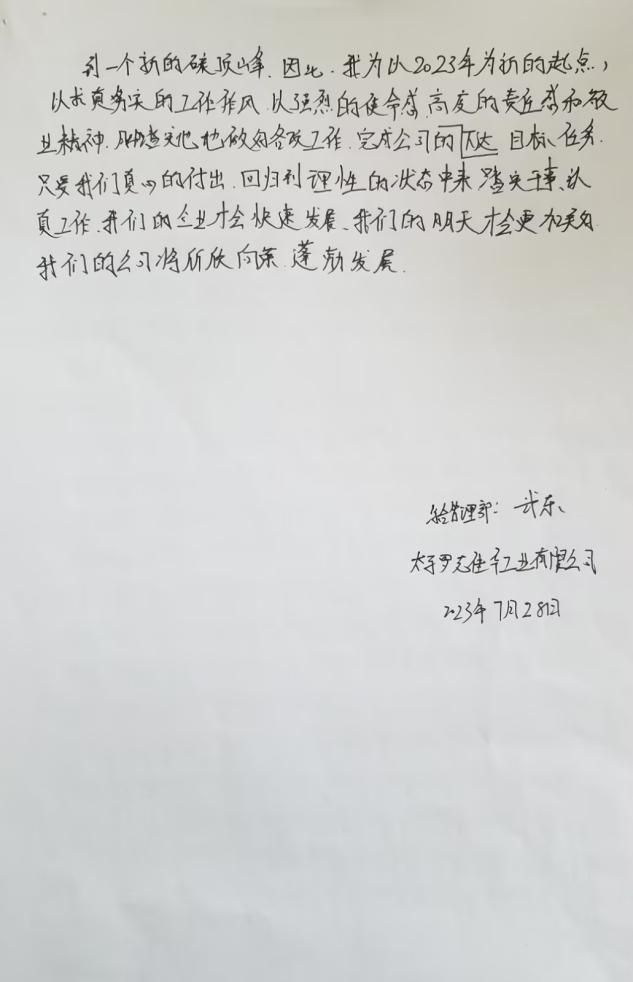 到一个新的碳顶峰。因此.我为以2023年为新的起点，
以求真务实的工作作风.以强烈的使命感.高度的责任感和敬
业精神.脚踏实地地做好各项工作.完成公司的下达目标、任务.
只要我们真心的付出.回归到理性的状态中来踏实干事、认
真工作.我们的企业才会快速发展、我们的明天才会更加美好
我们的公司将欣欣向荣.蓬勃发展.
管理部：武东、
工业有限公司
2023年7月28日